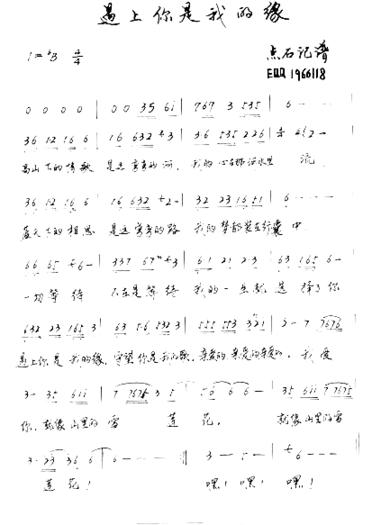 遇上你是我的缘
1=♭B 4/4
点石记谱
1966118
0 0 0 0 | 0 0 35 61 | 767 3 535 | 6 - - -
36 12 16 6 | 16 632 3 | 36 535 226
高山下的情歌 是这弯弯的河, 我的心在那河水里 流
36 12 16 6 | 16 632 2- | 32 23 16 51 | 6 - - -
蓝天下的相思 是这弯弯的路 我的梦都装在行囊中
66 65 6- | 337 57 3 | 61 21 23 | 63 165 6-
一切等待 不在是等待 我的一生就是择了你
632 23 165 3 | 63 56 532 3 | 555 553 321 | 2- 7 7676
遇上你是 我的缘, 守望你是我的歌, 亲爱的亲爱的亲爱的, 我爱
3- 35 611 | 7 7676 3 5 | 56 6 6- | 35 611 7 7675
你, 就像山里的雪 莲 花, 就像山里的雪
3- 23 36 6 | 6 - - - | 3 - 5 - | 6 - - -
莲 花! 嘿! 嘿! 嘿!